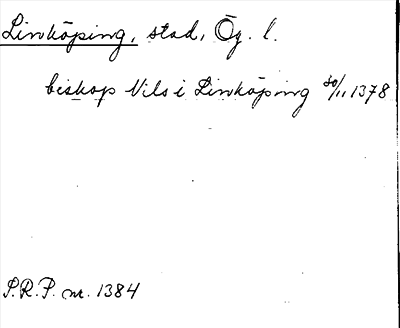 Linköping, stad, Ög. l.
biskop Nils i Linköping 30/11 1378
S.R.P. nr. 1384